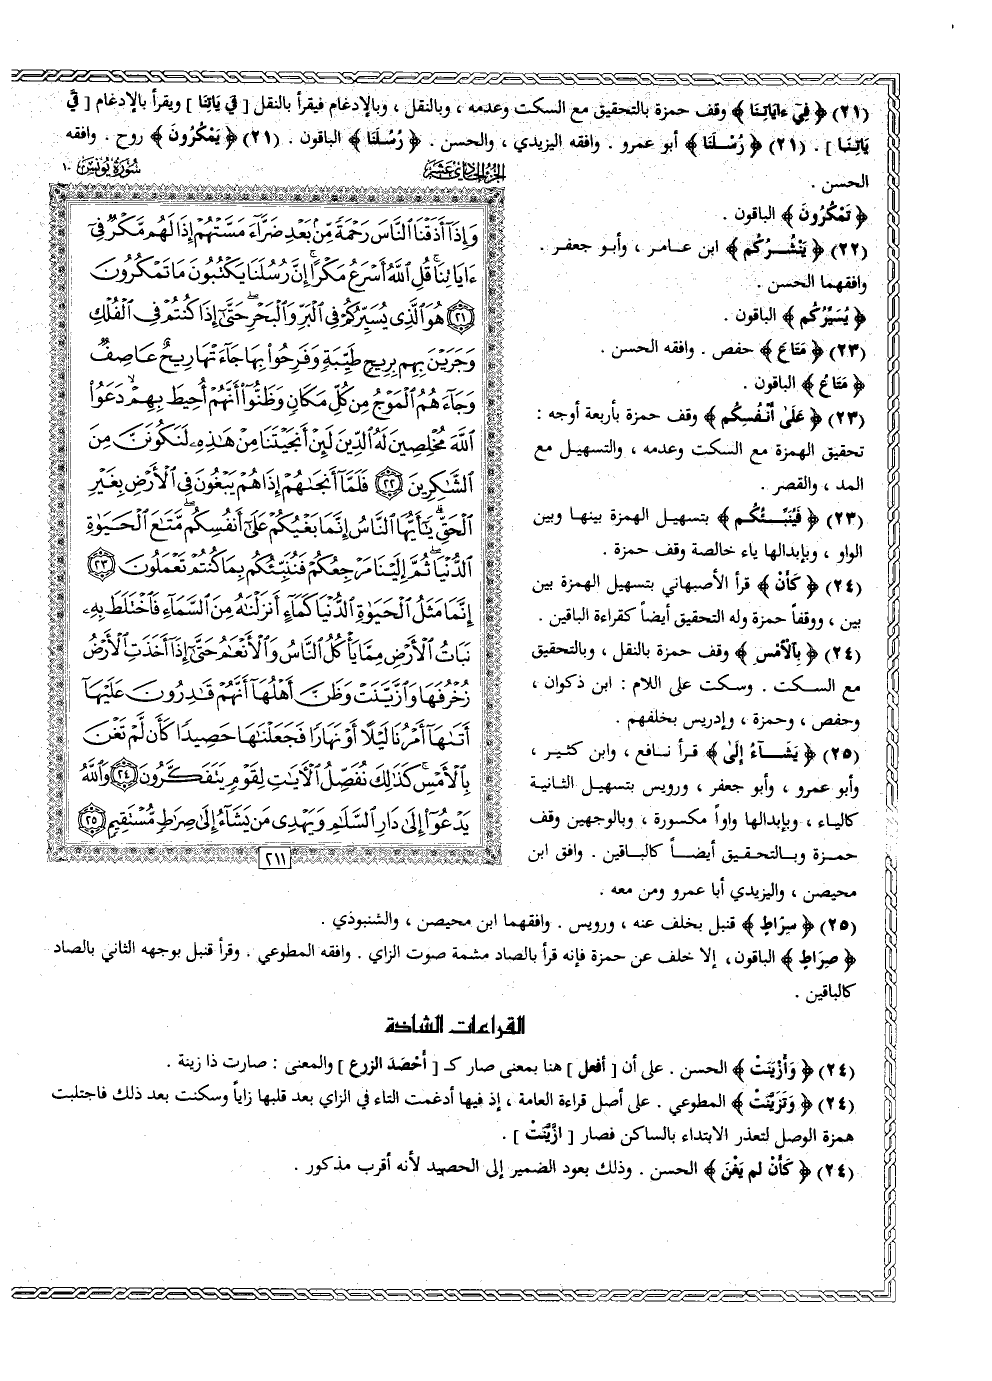 (٢١) ﴿ فِي ءَايَاتِنَا ﴾ وقف حمزة بالتحقيق مع السكت وعدمه ، وبالنقل ، وبالإدغام فيقرأ بالنقل [ فِي يَاتِنَا ] ويقرأ بالإدغام [ فِيَّ
يَاتِنَا ] . (٢١) ﴿ رُسْلَنَا ﴾ أبو عمرو . وافقه اليزيدي ، والحسن . ﴿ رُسُلَنَا ﴾ الباقون . (٢١) ﴿ يَمْكُرُونَ ﴾ روح . وافقه
الحسن .
﴿ تَمْكُرُونَ ﴾ الباقون .
(٢٢) ﴿ يَنْشُرُكُم ﴾ ابن عامر ، وأبو جعفر .
وافقهما الحسن .
﴿ يُسَيِّرُكُم ﴾ الباقون .
(٢٣) ﴿ مَتَاعَ ﴾ حفص . وافقه الحسن .
﴿ مَتَاعُ ﴾ الباقون .
(٢٣) ﴿ عَلَىٰ أَنْفُسِكُم ﴾ وقف حمزة بأربعة أوجه :
تحقيق الهمزة مع السكت وعدمه ، والتسهيل مع
المد ، والقصر .
(٢٣) ﴿ فَنُنَبِّئُكُم ﴾ بتسهيل الهمزة بينها وبين
الواو ، وبإبدالها ياء خالصة وقف حمزة .
(٢٤) ﴿ كَأَنْ ﴾ قرأ الأصبهاني بتسهيل الهمزة بين
بين ، ووقفاً حمزة وله التحقيق أيضاً كقراءة الباقين .
(٢٤) ﴿ بِالْأَمْسِ ﴾ وقف حمزة بالنقل ، وبالتحقيق
مع السكت . وسكت على اللام : ابن ذكوان ،
وحفص ، وحمزة ، وإدريس بخلفهم .
(٢٥) ﴿ يَشَاءُ إِلَىٰ ﴾ قرأ نافع ، وابن كثير ،
وأبو عمرو ، وأبو جعفر ، ورويس بتسهيل الثانية
كالياء ، وبإبدالها واواً مكسورة ، وبالوجهين وقف
حمزة وبالتحقيق أيضاً كالباقين . وافق ابن
محيصن ، واليزيدي أبا عمرو ومن معه .
الجزء الحادي عشر
سورة يونس ١٠
وَإِذَآ أَذَقْنَا ٱلنَّاسَ رَحْمَةً مِّنۢ بَعْدِ ضَرَّآءَ مَسَّتْهُمْ إِذَا لَهُم مَّكْرٌ فِىٓ
ءَايَاتِنَا ۚ قُلِ ٱللَّهُ أَسْرَعُ مَكْرًا ۚ إِنَّ رُسُلَنَا يَكْتُبُونَ مَا تَمْكُرُونَ
﴿٢١﴾ هُوَ ٱلَّذِى يُسَيِّرُكُمْ فِى ٱلْبَرِّ وَٱلْبَحْرِ ۖ حَتَّىٰٓ إِذَا كُنتُمْ فِى ٱلْفُلْكِ
وَجَرَيْنَ بِهِم بِرِيحٍ طَيِّبَةٍ وَفَرِحُوا۟ بِهَا جَآءَتْهَا رِيحٌ عَاصِفٌ
وَجَآءَهُمُ ٱلْمَوْجُ مِن كُلِّ مَكَانٍ وَظَنُّوٓا۟ أَنَّهُمْ أُحِيطَ بِهِمْ ۙ دَعَوُا۟
ٱللَّهَ مُخْلِصِينَ لَهُ ٱلدِّينَ لَئِنْ أَنجَيْتَنَا مِنْ هَٰذِهِۦ لَنَكُونَنَّ مِنَ
ٱلشَّٰكِرِينَ ﴿٢٢﴾ فَلَمَّآ أَنجَىٰهُمْ إِذَا هُمْ يَبْغُونَ فِى ٱلْأَرْضِ بِغَيْرِ
ٱلْحَقِّ ۗ يَٰٓأَيُّهَا ٱلنَّاسُ إِنَّمَا بَغْيُكُمْ عَلَىٰٓ أَنفُسِكُم ۖ مَّتَٰعَ ٱلْحَيَوٰةِ
ٱلدُّنْيَا ۖ ثُمَّ إِلَيْنَا مَرْجِعُكُمْ فَنُنَبِّئُكُم بِمَا كُنتُمْ تَعْمَلُونَ ﴿٢٣﴾
إِنَّمَا مَثَلُ ٱلْحَيَوٰةِ ٱلدُّنْيَا كَمَآءٍ أَنزَلْنَٰهُ مِنَ ٱلسَّمَآءِ فَٱخْتَلَطَ بِهِۦ
نَبَاتُ ٱلْأَرْضِ مِمَّا يَأْكُلُ ٱلنَّاسُ وَٱلْأَنْعَٰمُ حَتَّىٰٓ إِذَآ أَخَذَتِ ٱلْأَرْضُ
زُخْرُفَهَا وَٱزَّيَّنَتْ وَظَنَّ أَهْلُهَآ أَنَّهُمْ قَٰدِرُونَ عَلَيْهَآ
أَتَىٰهَآ أَمْرُنَا لَيْلًا أَوْ نَهَارًا فَجَعَلْنَٰهَا حَصِيدًا كَأَن لَّمْ تَغْنَ
بِٱلْأَمْسِ ۚ كَذَٰلِكَ نُفَصِّلُ ٱلْآيَٰتِ لِقَوْمٍ يَتَفَكَّرُونَ ﴿٢٤﴾ وَٱللَّهُ
يَدْعُوٓا۟ إِلَىٰ دَارِ ٱلسَّلَٰمِ وَيَهْدِى مَن يَشَآءُ إِلَىٰ صِرَٰطٍ مُّسْتَقِيمٍ ﴿٢٥﴾
٢١١
(٢٥) ﴿ سِرَاطٍ ﴾ قنبل بخلف عنه ، ورويس . وافقهما ابن محيصن ، والشنبوذي .
﴿ صِرَاطٍ ﴾ الباقون ، إلا خلف عن حمزة فإنه قرأ بالصاد مشمة صوت الزاي . وافقه المطوعي . وقرأ قنبل بوجهه الثاني بالصاد
كالباقين .
القراءات الشاذة
(٢٤) ﴿ وَأَزْيَنَتْ ﴾ الحسن . على أن [ أفعل ] هنا بمعنى صار كـ [ أَحْصَدَ الزرع ] والمعنى : صارت ذا زينة .
(٢٤) ﴿ وَتَزَيَّنَتْ ﴾ المطوعي . على أصل قراءة العامة ، إذ فيها أدغمت التاء في الزاي بعد قلبها زاياً وسكنت بعد ذلك فاجتلبت
همزة الوصل لتعذر الابتداء بالساكن فصار [ ازَّيَّنَتْ ] .
(٢٤) ﴿ كَأَنْ لم يَغْنَ ﴾ الحسن . وذلك بعود الضمير إلى الحصيد لأنه أقرب مذكور .